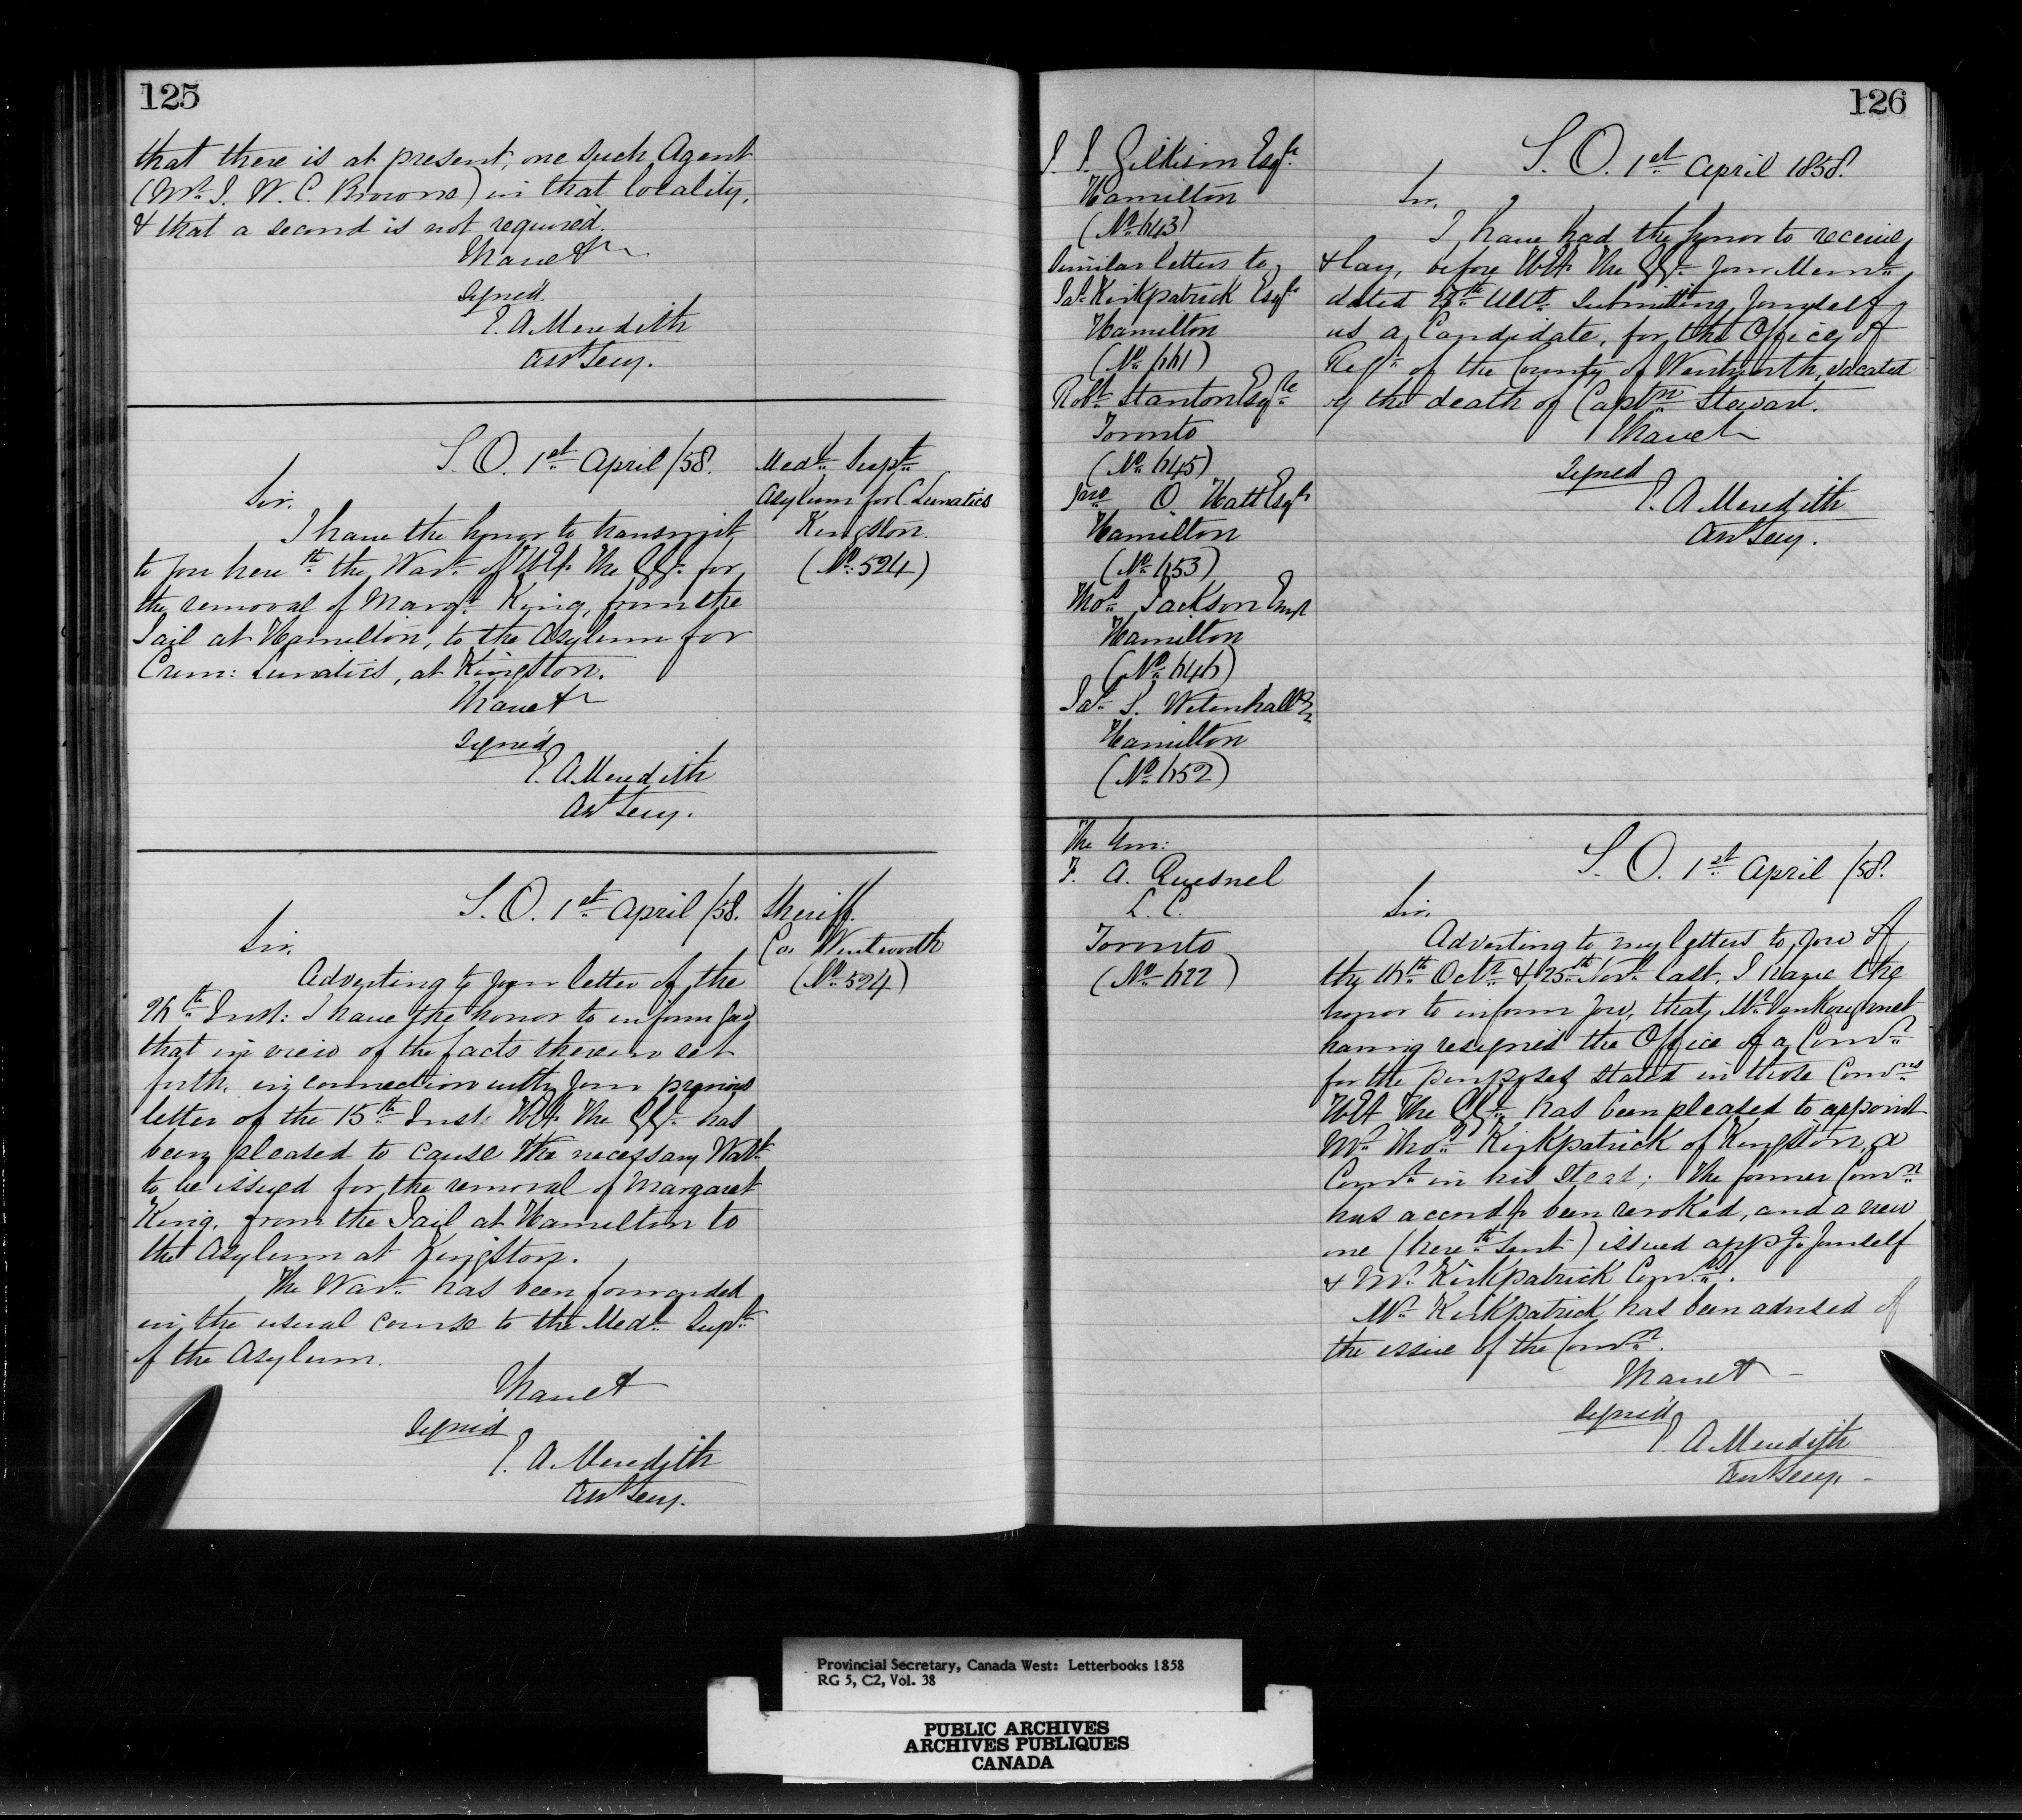 125
that there is at present, one such Agent
(Mr. J. W. C. Browne) in that locality,
& that a second is not required.
I have &c
Signed.
E. A. Meredith
Asst Secy.
S. O. 1st April /58.
Medl. Supt.
Asylum for C. Lunatics
Kingston.
(No. 524)
Sir.
I have the honor to transmit
to you hereth the Wart. of H.E. The G.G. for
the removal of Margt. King, from the
Jail at Hamilton, to the Asylum for
Crim: Lunatics, at Kingston.
I have &c
Signed
E. A. Meredith
Asst Secy.
S. O. 1st April /58.
Sheriff.
Co. Wentworth
(No. 524)
Sir,
Adverting to your letter of the
26th Inst: I have the honor to inform you
that in view of the facts therein set
forth, in connection with your previous
letter of the 15th Inst: H.E. The G.G. has
been pleased to cause the necessary Wart.
to be issued for the removal of Margaret
King, from the Jail at Hamilton to
the Asylum at Kingston.
The Wart. has been forwarded
in the usual course to the Medl. Supt.
of the Asylum.
I have &
Signed
E. A. Meredith
Asst Secy.
126
J. T. Gilkison Esqre
Hamilton
(No. 643)
Similar letters to
Jas. Kirkpatrick Esqre
Hamilton
(No. 661)
Robt. Stanton Esqre
Toronto
(No. 645)
Jno O. Hatt Esqre
Hamilton
(No. 653)
Thos. Jackson Esqr
Hamilton
(No. 646)
Jas. S. Wetenhall
Hamilton
(No. 652)
S. O. 1st April 1858.
Sir,
I have had the honor to receive,
& lay, before H.E. The G.G. your Meml.
dated Ulto. Submitting yourself,
as a Candidate, for the Office of
Regr. of the County of Wentworth, vacated
by the death of Captn. Stewart.
I have &
Signed
E. A. Meredith
Asst Secy.
The Hon:
F. A. Quesnel
L. C.
Toronto
(No. 622)
S. O. 1st April /58.
Sir,
Adverting to my letters to you of
the 16th Octr. & 25th Novr. last, I have the
honor to inform you, that Mr. VanKoughnet
having resigned the Office of a Comr.
for the purposes stated in those Comns.
H.E. The G.G. has been pleased to appoint
Mr. Thos. Kirkpatrick of Kingston, a
Comr. in his Stead; The former Comn.
has accordy been revoked, and a new
one (hereth. Sent) issued appg. Yourself
& Mr. Kirkpatrick Comrs.
Mr. Kirkpatrick has been advised of
the issue of the Comn.
I have &
Signed
E. A. Meredith
Asst Secy
Provincial Secretary, Canada West: Letterbooks 1858
RG 5, C2, Vol. 38
PUBLIC ARCHIVES
ARCHIVES PUBLIQUES
CANADA